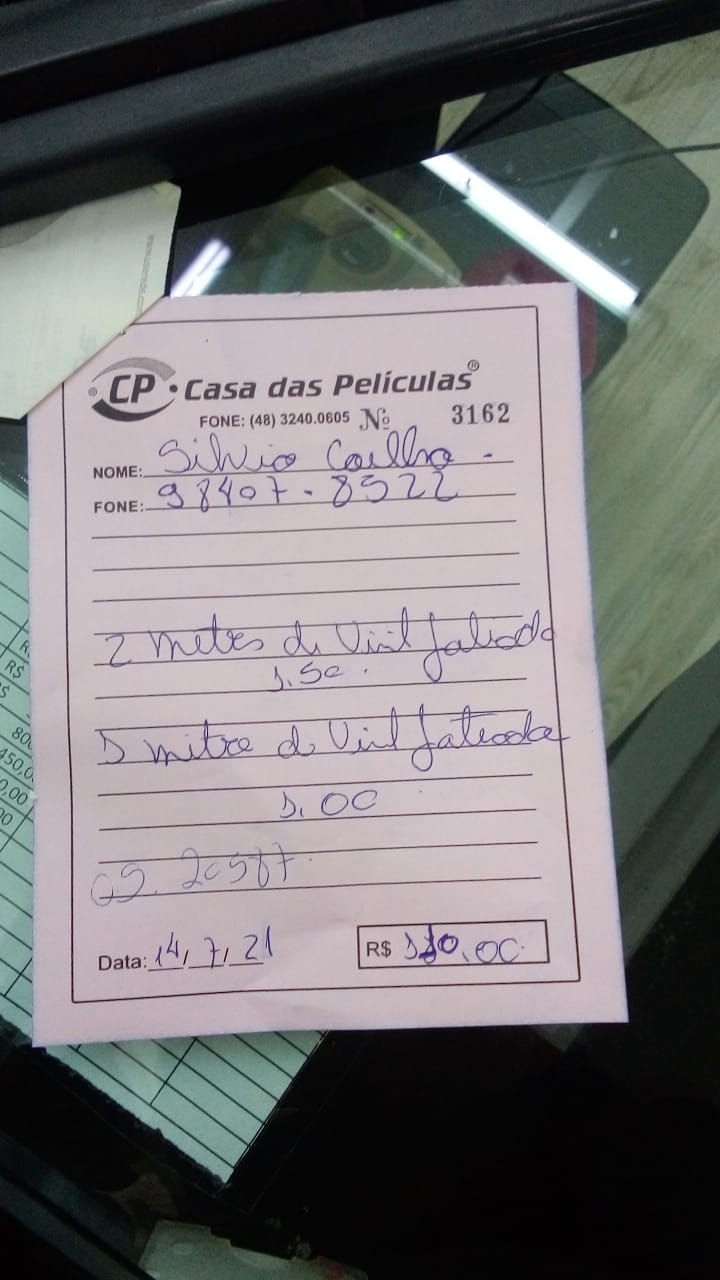 CP • Casa das Películas®
FONE: (48) 3240.0605 Nº 3162
NOME: Silvio Coelho -
FONE: 98407-8522
2 metros de Vinil Jateado
1.50.
1 metro de Vinil Jateado
1,00
OS. 20587.
Data: 14/7/21 R$ 110,00
R$
450,0
0,00
00